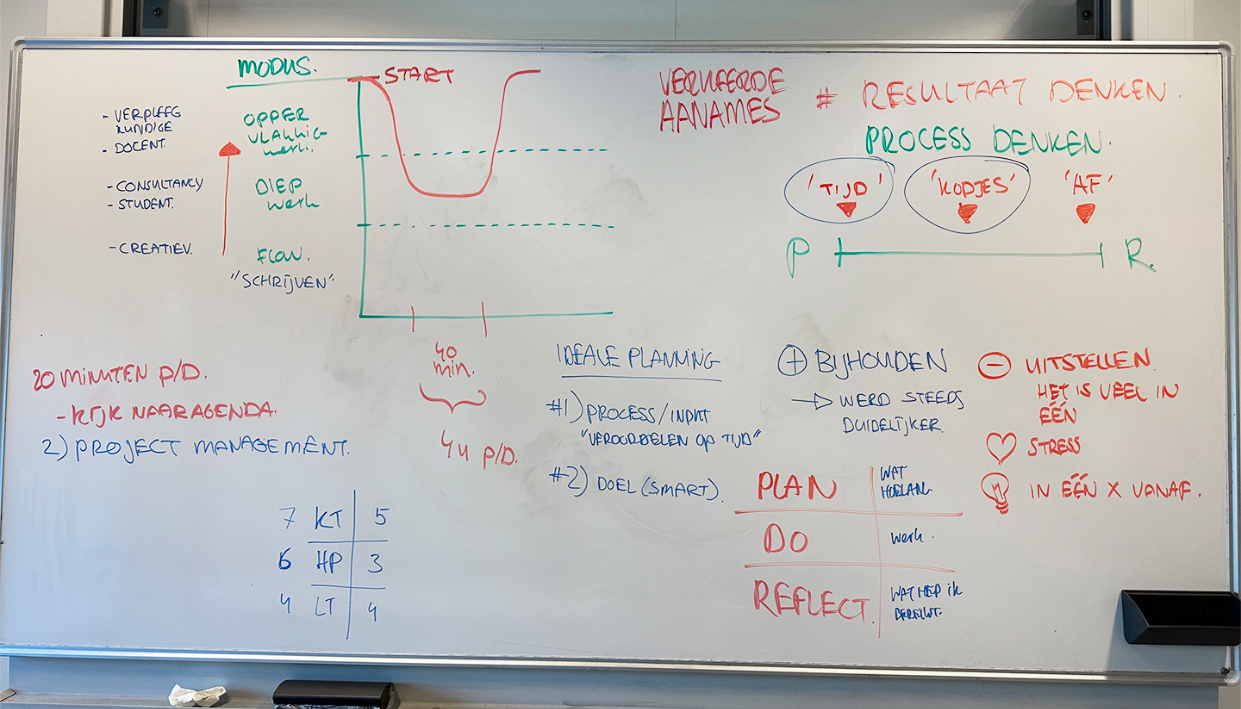 MODUS.
START
- VERPLEEG
KUNDIGE
- DOCENT.
OPPER
VLAKKIG-
werk.
- CONSULTANCY
- STUDENT.
DIEP
werk
- CREATIEV.
FLOW.
"SCHRIJVEN"
40
min.
4u P/D.
VERKEERDE
AANAMES
# RESULTAAT DENKEN.
PROCESS DENKEN.
'TIJD' 'KOPJES' 'AF'
P R.
20 MINUTEN P/D.
- KIJK NAAR AGENDA.
2) PROJECT MANAGEMENT.
7 KT 5
6 HP 3
4 LT 4
IDEALE PLANNING
#1) PROCESS/INPUT
"VEROORDELEN OP TIJD"
#2) DOEL (SMART).
+ BIJHOUDEN
→ WERD STEEDS
DUIDELIJKER.
- UITSTELLEN.
HET IS VEEL IN
ÉÉN
♡ STRESS
IN ÉÉN X VANAF.
PLAN
WAT
HOELANG
DO
werk.
REFLECT.
WAT HEB ik
BEREIKT.